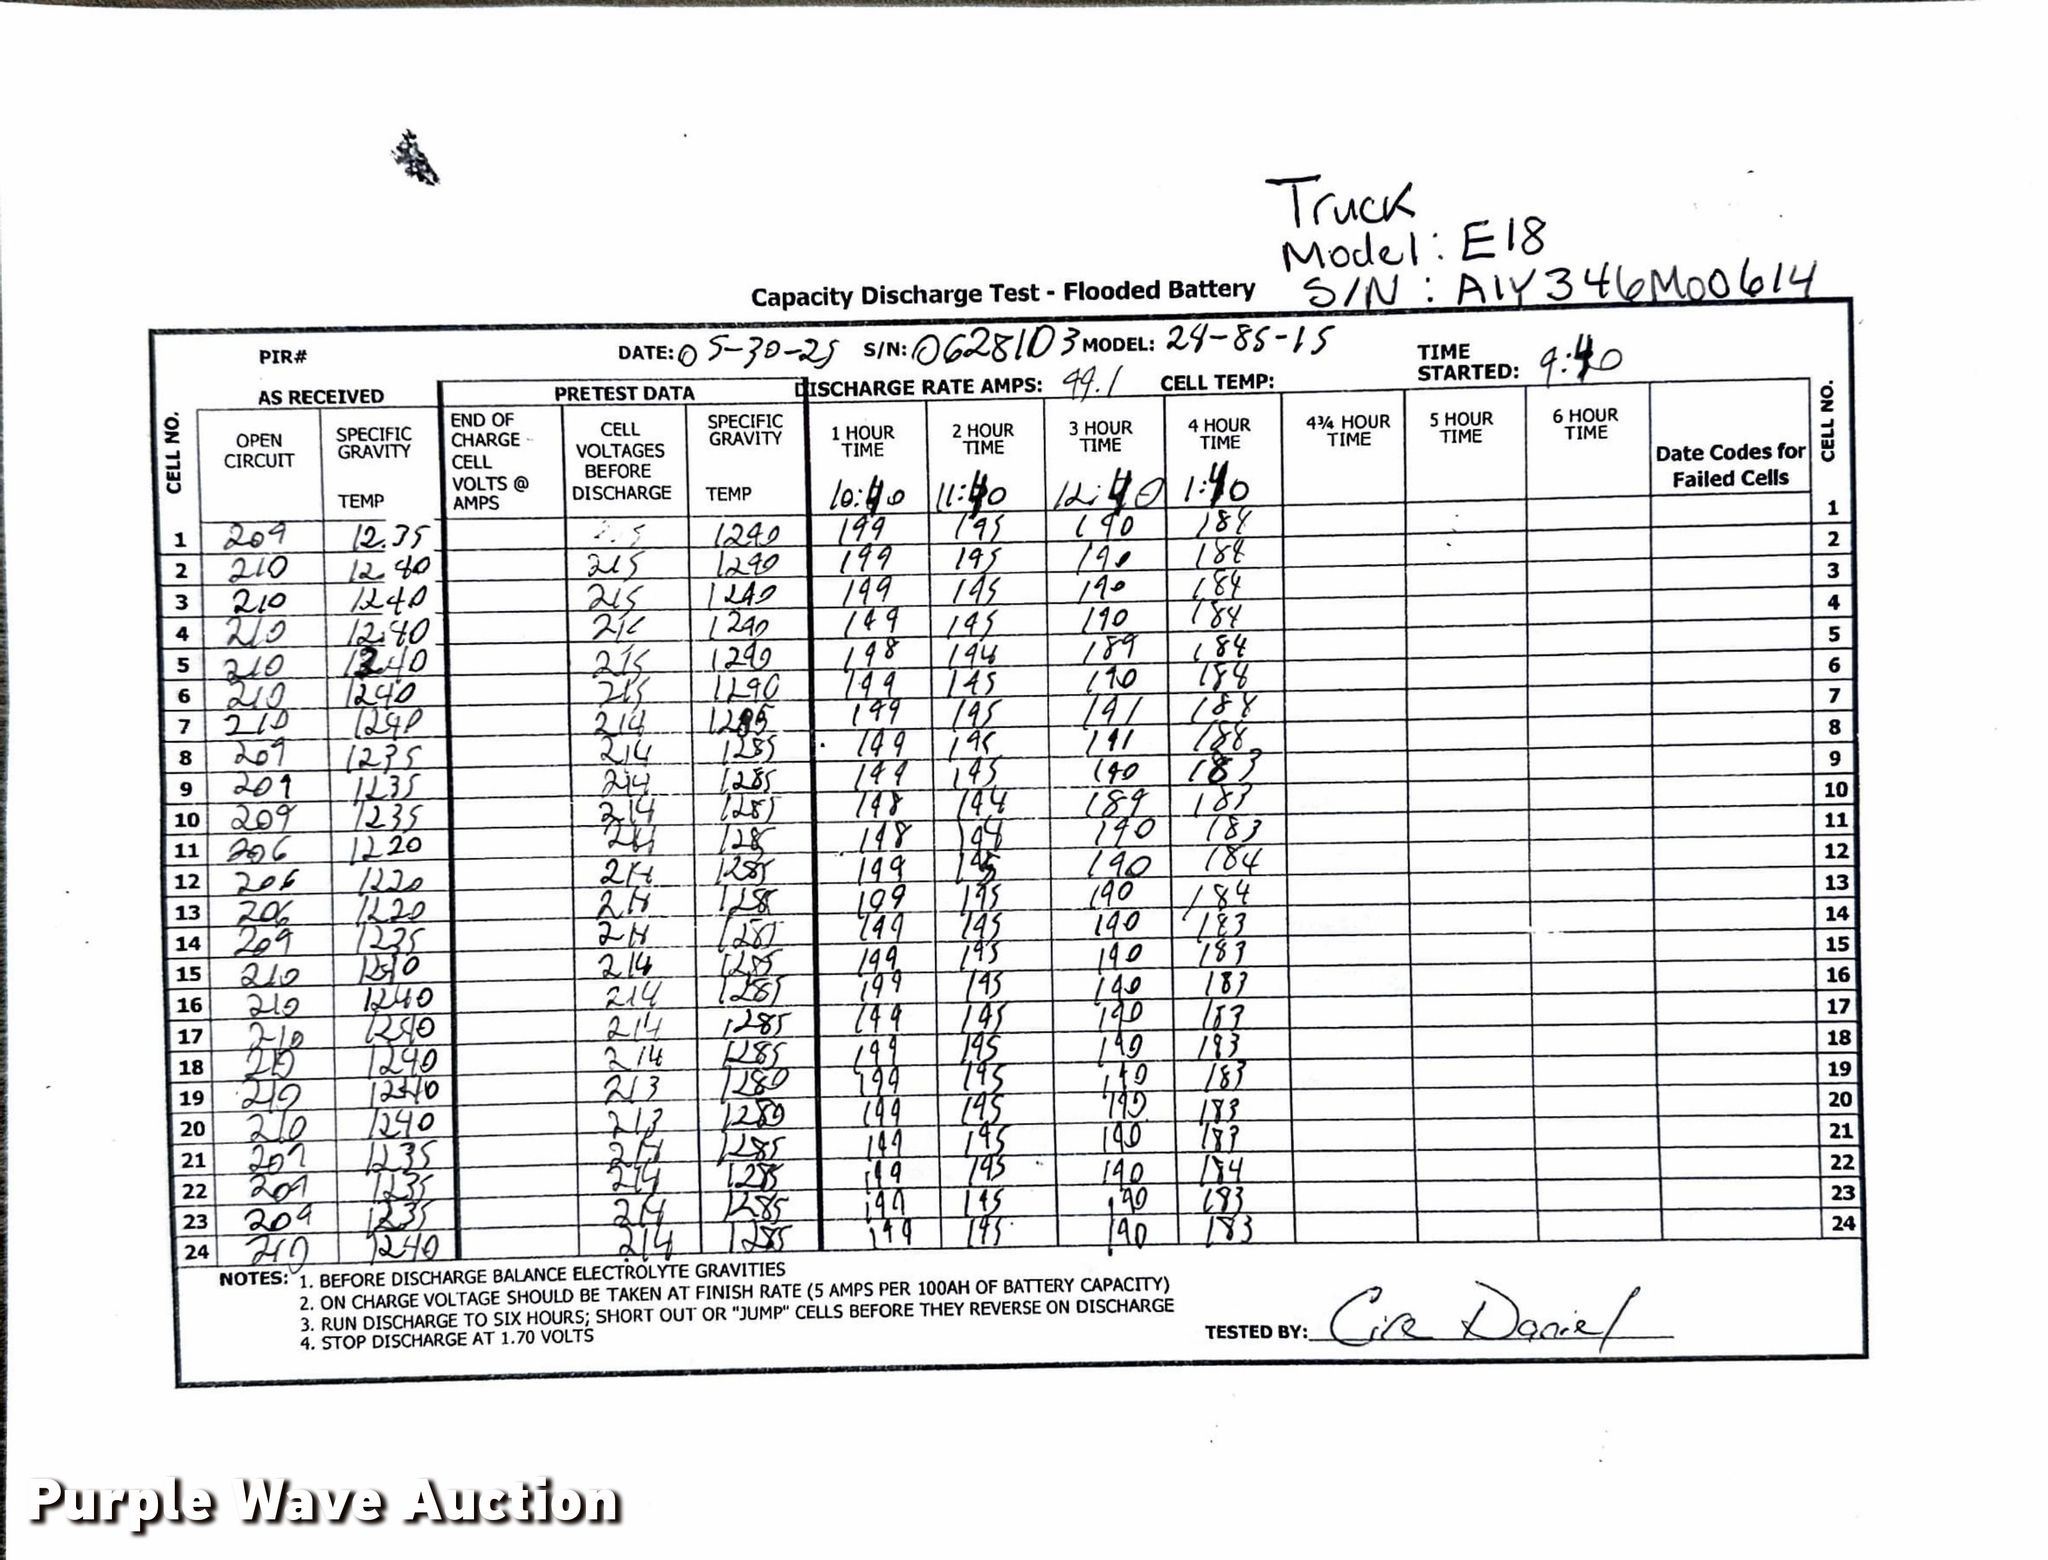 Truck
Model: E18
S/N: A1Y346M00614
Capacity Discharge Test - Flooded Battery
PIR# DATE: 05-30-25 S/N: 0628103 MODEL: 24-85-15 TIME STARTED: 9:40
AS RECEIVED PRETEST DATA DISCHARGE RATE AMPS: 99.1 CELL TEMP:
CELL NO. OPEN CIRCUIT SPECIFIC GRAVITY TEMP END OF CHARGE CELL VOLTS @ AMPS CELL VOLTAGES BEFORE DISCHARGE SPECIFIC GRAVITY TEMP 1 HOUR TIME 2 HOUR TIME 3 HOUR TIME 4 HOUR TIME 4¾ HOUR TIME 5 HOUR TIME 6 HOUR TIME Date Codes for Failed Cells CELL NO.
10:40 11:40 12:40 1:40
1 209 12.35 1290 199 195 190 184 1
2 210 12.40 215 1290 199 195 190 184 2
3 210 1240 215 1290 199 195 190 184 3
4 210 12.40 1290 199 195 190 184 4
5 210 1240 215 1290 198 194 189 184 5
6 210 1240 215 1290 199 195 190 184 6
7 210 1240 214 1285 199 195 191 184 7
8 209 1235 214 1285 199 195 191 184 8
9 209 1235 214 1285 199 195 190 183 9
10 209 1235 214 1285 198 194 189 183 10
11 206 1220 214 1285 198 194 190 183 11
12 206 1220 214 1285 199 195 190 184 12
13 206 1220 214 1285 199 195 190 184 13
14 209 1235 214 1285 199 195 190 183 14
15 210 1240 214 1285 199 195 190 183 15
16 210 1240 214 1285 199 195 190 183 16
17 210 1240 214 1285 199 195 190 183 17
18 210 1240 214 1285 199 195 190 183 18
19 210 1240 213 1280 199 195 190 183 19
20 210 1240 213 1280 199 195 190 183 20
21 209 1235 214 1285 199 195 190 183 21
22 209 1235 214 1285 199 195 190 184 22
23 209 1235 214 1285 199 195 190 183 23
24 210 1240 214 1285 199 195 190 183 24
NOTES: 1. BEFORE DISCHARGE BALANCE ELECTROLYTE GRAVITIES
2. ON CHARGE VOLTAGE SHOULD BE TAKEN AT FINISH RATE (5 AMPS PER 100AH OF BATTERY CAPACITY)
3. RUN DISCHARGE TO SIX HOURS; SHORT OUT OR "JUMP" CELLS BEFORE THEY REVERSE ON DISCHARGE
4. STOP DISCHARGE AT 1.70 VOLTS
TESTED BY: Cire Daniel
Purple Wave Auction